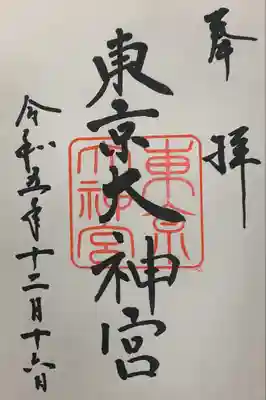 奉拝
東京大神宮
東京大神宮
令和五年十二月十六日